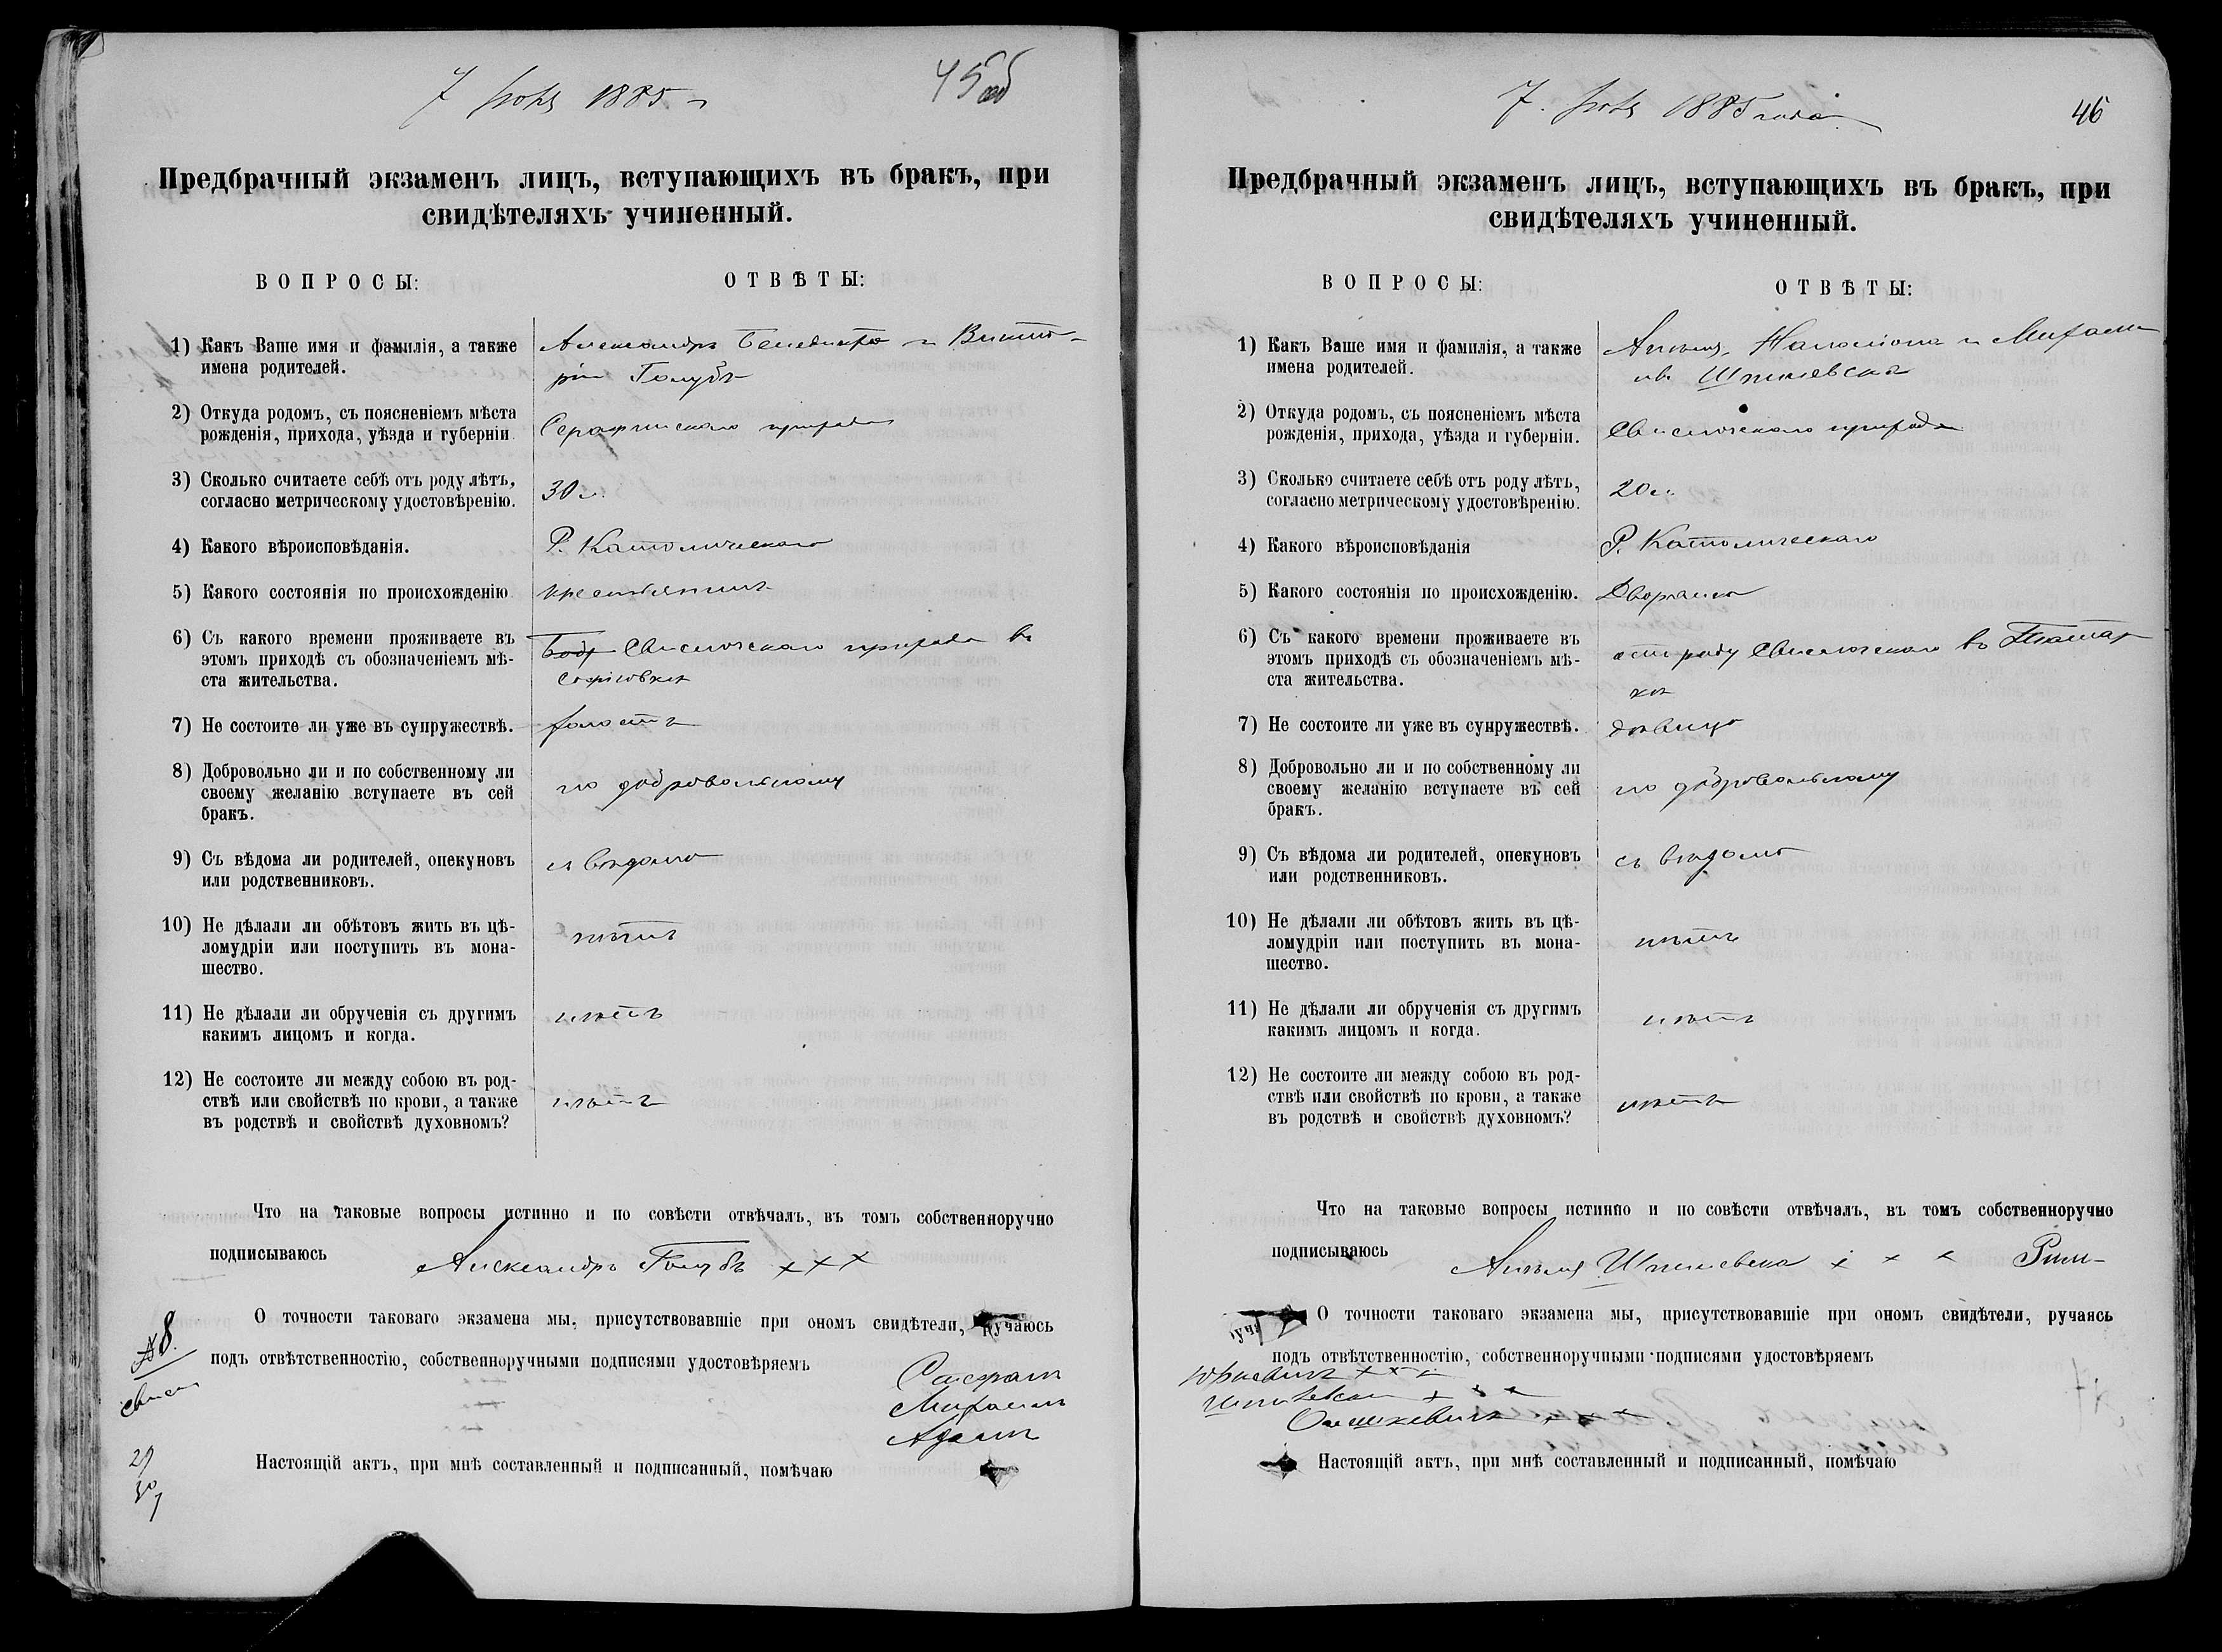 7 1885
45об
Предбрачный экзаменъ лицъ, вступающихъ въ бракъ, при
свидѣтеляхъ учиненный.
ВОПРОСЫ:
ОТВѢТЫ:
1) Какъ Ваше имя и фамилія, а также
имена родителей.
Александръ Бенедикта и Викто-
ріи Голубъ
2) Откуда родомъ, съ поясненіемъ мѣста
рожденія, прихода, уѣзда и губерніи
прихода
3) Сколько считаете себѣ отъ роду лѣтъ,
согласно метрическому удостовѣренію.
30 л.
4) Какого вѣроисповѣданія.
Р. Католическаго
5) Какого состоянія по происхожденію
крестьянинъ
6) Съ какого времени проживаете въ
этомъ приходѣ съ обозначеніемъ мѣ-
ста жительства.
Свислочскаго прихода въ
Софіовкѣ
7) Не состоите ли уже въ супружествѣ.
холостъ
8) Добровольно ли и по собственному ли
своему желанію вступаете въ сей
бракъ.
по добровольному
9) Съ вѣдома ли родителей, опекуновъ
или родственниковъ.
съ вѣдома
10) Не дѣлали ли обѣтовъ жить въ цѣ-
ломудріи или поступить въ мона-
шество.
нѣтъ
11) Не дѣлали ли обрученія съ другимъ
какимъ лицомъ и когда.
нѣтъ
12) Не состоите ли между собою въ род-
ствѣ или свойствѣ по крови, а также
въ родствѣ и свойствѣ духовномъ?
нѣтъ
Что на таковые вопросы истинно и по совѣсти отвѣчалъ, въ томъ собственноручно
подписываюсь
Александръ Голубъ +++
О точности таковаго экзамена мы, присутствовавшіе при ономъ свидѣтели, ручаюсь
подъ отвѣтственностію, собственноручными подписями удостовѣряемъ
№8.
Адамъ
29
30
Настоящій актъ, при мнѣ составленный и подписанный, помѣчаю
7. 1885 года
46
Предбрачный экзаменъ лицъ, вступающихъ въ бракъ, при
свидѣтеляхъ учиненный.
ВОПРОСЫ:
ОТВѢТЫ:
1) Какъ Ваше имя и фамилія, а также
имена родителей.
Шпилевска
2) Откуда родомъ, съ поясненіемъ мѣста
рожденія, прихода, уѣзда и губерніи.
Свислочскаго прихода
3) Сколько считаете себѣ отъ роду лѣтъ,
согласно метрическому удостовѣренію.
20 л.
4) Какого вѣроисповѣданія
Р. Католическаго
5) Какого состоянія по происхожденію.
Дворянка
6) Съ какого времени проживаете въ
этомъ приходѣ съ обозначеніемъ мѣ-
ста жительства.
отъ роду Свислочскаго въ
7) Не состоите ли уже въ супружествѣ.
дѣвица
8) Добровольно ли и по собственному ли
своему желанію вступаете въ сей
бракъ.
по добровольному
9) Съ вѣдома ли родителей, опекуновъ
или родственниковъ.
съ вѣдома
10) Не дѣлали ли обѣтовъ жить въ цѣ-
ломудріи или поступить въ мона-
шество.
нѣтъ
11) Не дѣлали ли обрученія съ другимъ
какимъ лицомъ и когда.
нѣтъ
12) Не состоите ли между собою въ род-
ствѣ или свойствѣ по крови, а также
въ родствѣ и свойствѣ духовномъ?
нѣтъ
Что на таковые вопросы истинно и по совѣсти отвѣчалъ, въ томъ собственноручно
подписываюсь
Шпилевска + + +
О точности таковаго экзамена мы, присутствовавшіе при ономъ свидѣтели, ручаясь
подъ отвѣтственностію, собственноручными подписями удостовѣряемъ
Юркевичъ + + +
+ + +
+ + +
Настоящій актъ, при мнѣ составленный и подписанный, помѣчаю